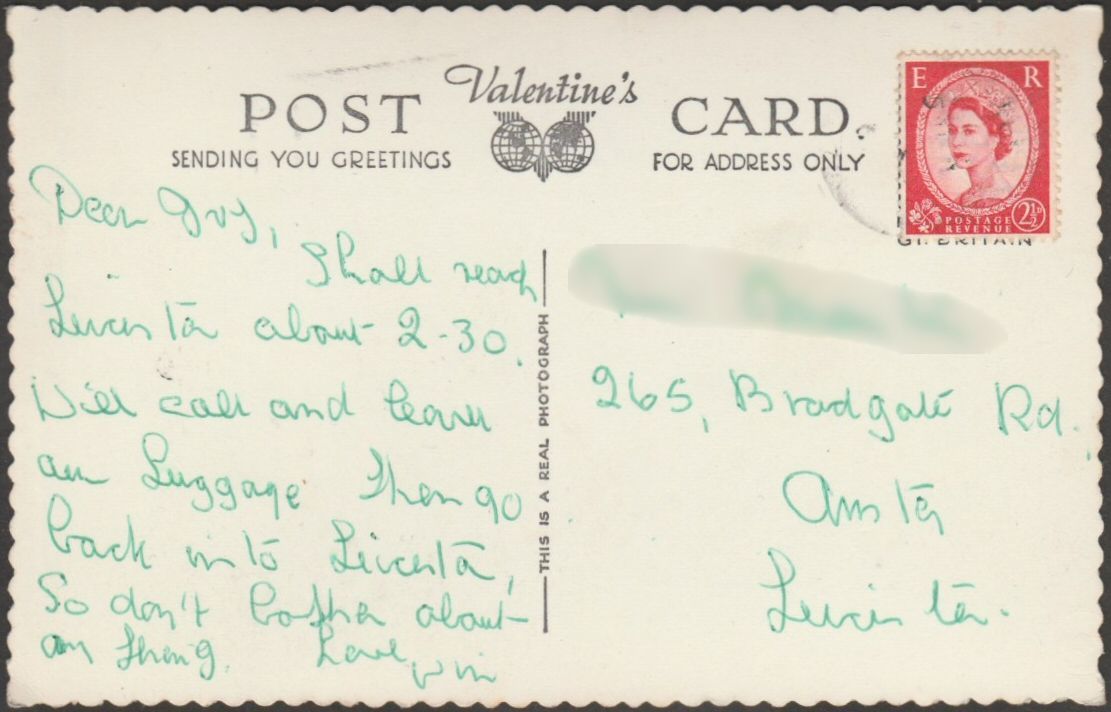 Valentine's
POST CARD
SENDING YOU GREETINGS
FOR ADDRESS ONLY
E R
POSTAGE
REVENUE
2½D
GT. BRITAIN
Dear
Shall reach
Leicester about 2-30.
Will call and leave
our Luggage Then go
back into Leicester,
So don't bother about
any thing. Love, Win
THIS IS A REAL PHOTOGRAPH
265, Bradgate Rd.
Anstey
Leicester.